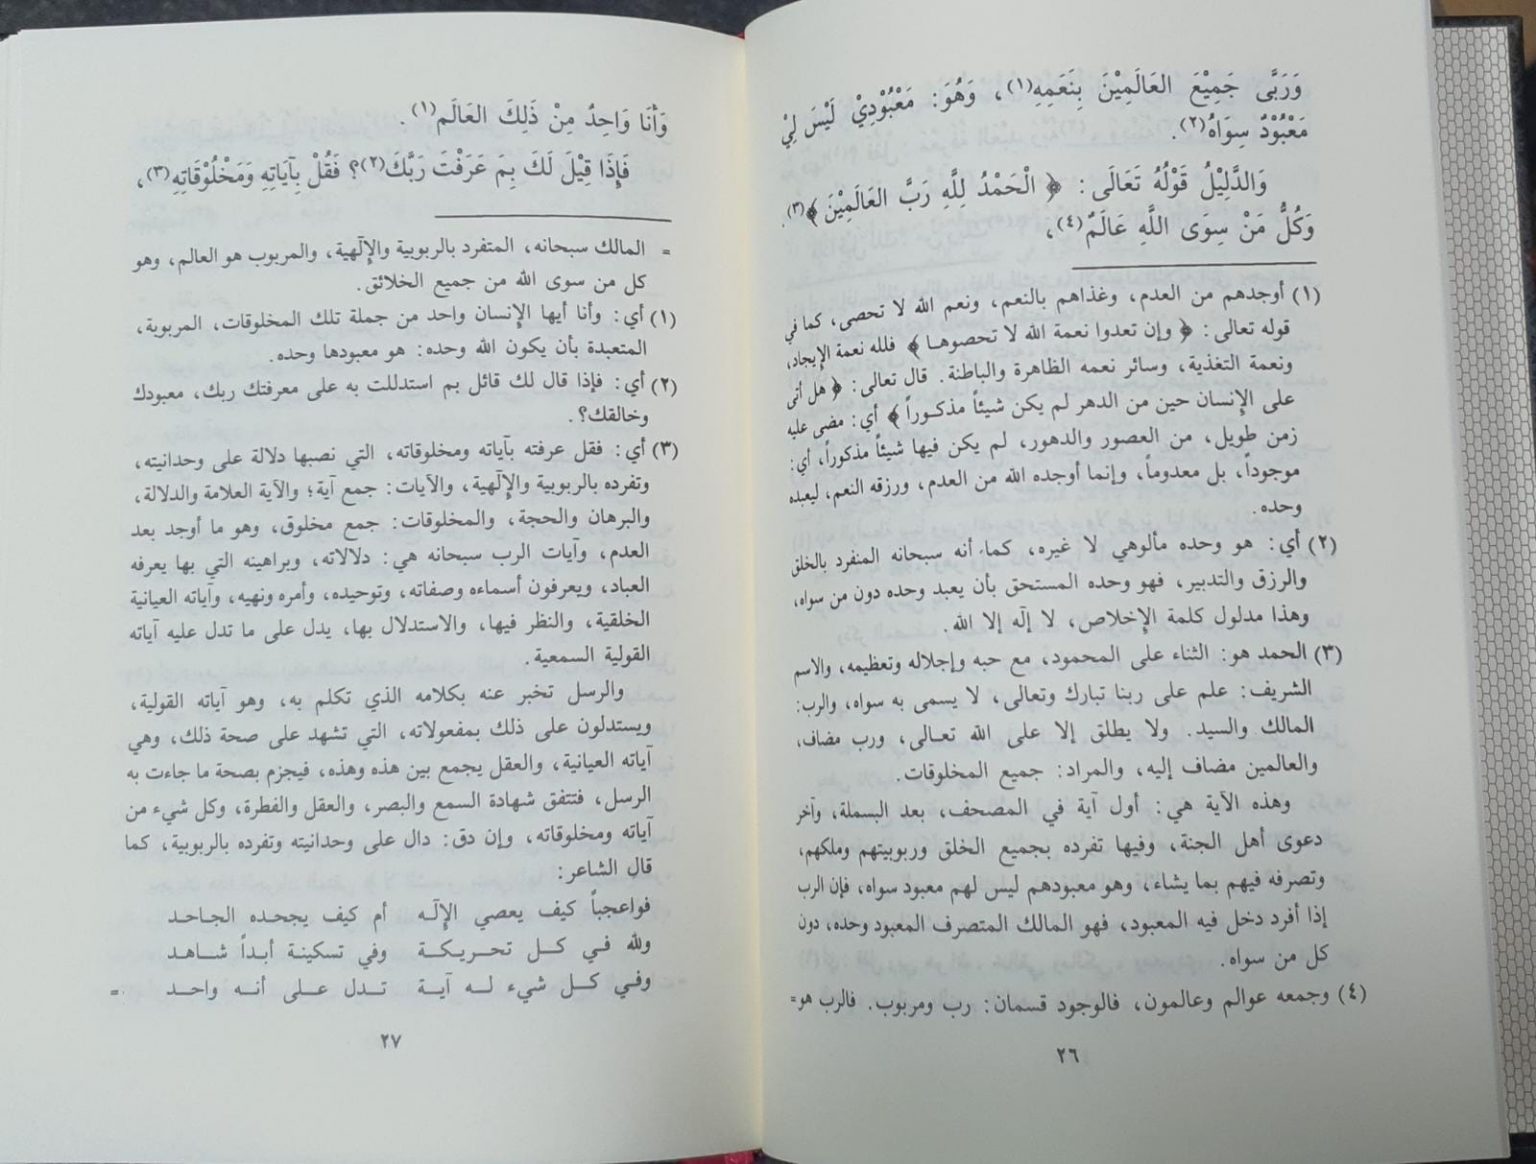 وَرَبَّى جَمِيْعَ العَالَمِيْنَ بِنَعَمِهِ(١)، وَهُوَ: مَعْبُوْدِيْ لَيْسَ لِيْ
مَعْبُوْدٌ سِوَاهُ(٢).
وَالدَّلِيْلُ قَوْلُهُ تَعَالَى: ﴿ الْحَمْدُ لِلَّهِ رَبَّ العَالَمِيْنَ ﴾(٣).
وَكُلُّ مَنْ سِوَى اللَّهِ عَالَمٌ(٤)،
(١) أوجدهم من العدم، وغذاهم بالنعم، ونعم الله لا تحصى، كما في
قوله تعالى: ﴿ وإن تعدوا نعمة الله لا تحصوها ﴾ فلله نعمة الإيجاد،
ونعمة التغذية، وسائر نعمه الظاهرة والباطنة. قال تعالى: ﴿ هل أتى
على الإنسان حين من الدهر لم يكن شيئاً مذكوراً ﴾ أي: مضى عليه
زمن طويل، من العصور والدهور، لم يكن فيها شيئاً مذكوراً، أي:
موجوداً، بل معدوماً، وإنما أوجده الله من العدم، ورزقه النعم، ليعبده
وحده.
(٢) أي: هو وحده مألوهي لا غيره، كما أنه سبحانه المنفرد بالخلق
والرزق والتدبير، فهو وحده المستحق بأن يعبد وحده دون من سواه،
وهذا مدلول كلمة الإخلاص، لا إلٓه إلا الله.
(٣) الحمد هو: الثناء على المحمود، مع حبه وإجلاله وتعظيمه، والاسم
الشريف: علم على ربنا تبارك وتعالى، لا يسمى به سواه، والرب:
المالك والسيد. ولا يطلق إلا على الله تعالى، ورب مضاف،
والعالمين مضاف إليه، والمراد: جميع المخلوقات.
وهذه الآية هي: أول آية في المصحف، بعد البسملة، وآخر
دعوى أهل الجنة، وفيها تفرده بجميع الخلق وربوبيتهم وملكهم،
وتصرفه فيهم بما يشاء، وهو معبودهم ليس لهم معبود سواه، فإن الرب
إذا أفرد دخل فيه المعبود، فهو المالك المتصرف المعبود وحده، دون
كل من سواه.
(٤) وجمعه عوالم وعالمون، فالوجود قسمان: رب ومربوب. فالرب هو=
٢٦
وَأَنَا وَاحِدٌ مِنْ ذَلِكَ العَالَم(١).
فَإِذَا قِيْلَ لَكَ بِمَ عَرَفْتَ رَبَّكَ(٢)؟ فَقُلْ بِآيَاتِهِ وَمَخْلُوْقَاتِهِ(٣)،
= المالك سبحانه، المتفرد بالربوبية والإلٓهية، والمربوب هو العالم، وهو
كل من سوى الله من جميع الخلائق.
(١) أي: وأنا أيها الإنسان واحد من جملة تلك المخلوقات، المربوبة،
المتعبدة بأن يكون الله وحده: هو معبودها وحده.
(٢) أي: فإذا قال لك قائل بم استدللت به على معرفتك ربك، معبودك
وخالقك؟.
(٣) أي: فقل عرفته بآياته ومخلوقاته، التي نصبها دلالة على وحدانيته،
وتفرده بالربوبية والإلٓهية، والآيات: جمع آية؛ والآية العلامة والدلالة،
والبرهان والحجة، والمخلوقات: جمع مخلوق، وهو ما أوجد بعد
العدم، وآيات الرب سبحانه هي: دلالاته، وبراهينه التي بها يعرفه
العباد، ويعرفون أسماءه وصفاته، وتوحيده، وأمره ونهيه، وآياته العيانية
الخلقية، والنظر فيها، والاستدلال بها، يدل على ما تدل عليه آياته
القولية السمعية.
والرسل تخبر عنه بكلامه الذي تكلم به، وهو آياته القولية،
ويستدلون على ذلك بمفعولاته، التي تشهد على صحة ذلك، وهي
آياته العيانية، والعقل يجمع بين هذه وهذه، فيجزم بصحة ما جاءت به
الرسل، فتتفق شهادة السمع والبصر، والعقل والفطرة، وكل شيء من
آياته ومخلوقاته، وإن دق: دال على وحدانيته وتفرده بالربوبية، كما
قال الشاعر:
فواعجباً كيف يعصي الإلٓه أم كيف يجحده الجاحد
ولله في كل تحريكة وفي تسكينة أبداً شاهد
وفي كل شيء له آية تدل على أنه واحد =
٢٧